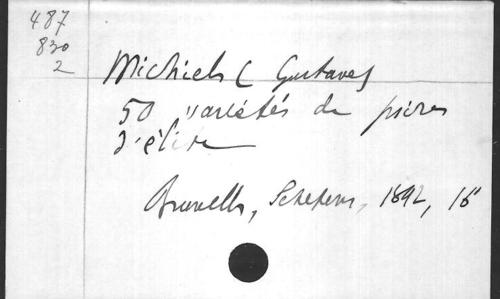 487
830
2
Michiels ( Gustave)
50 variétés de poires
d'élite
Bruxelles, Schepens, 1892, 16°